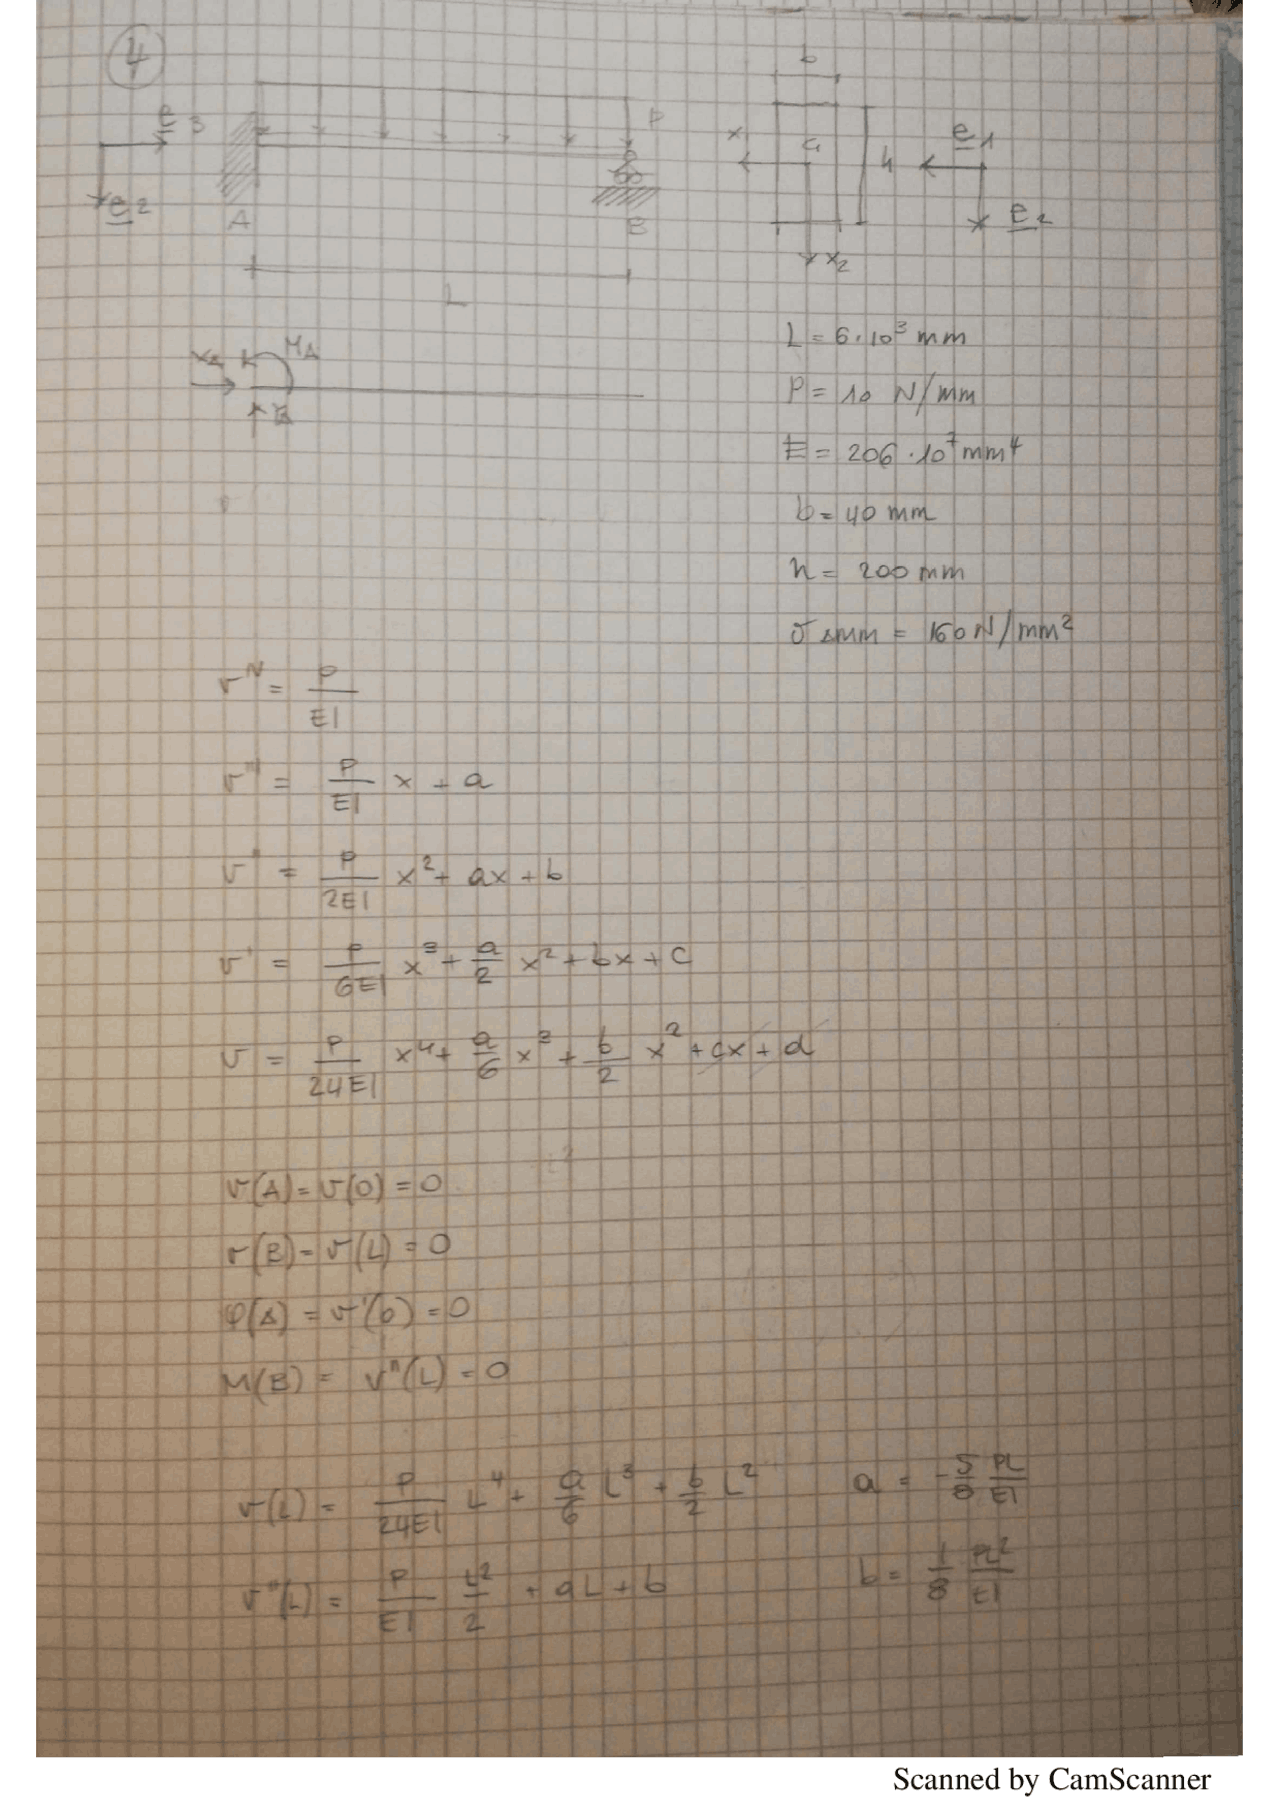 4
b
e3
P
x
G
h
e1
e2
A
B
e2
x2
L
L = 6·10³ mm
XA MA
P = 10 N/mm
E = 206·10⁷ mm⁴
b = 40 mm
h = 200 mm
σ amm = 160 N/mm²
v^IV = P/EI
v''' = P/EI x + a
v'' = P/2EI x² + ax + b
v' = P/6EI x³ + a/2 x² + bx + c
v = P/24EI x⁴ + a/6 x³ + b/2 x² + cx + d
v(A) = v(0) = 0
v(B) = v(L) = 0
φ(A) = v'(0) = 0
M(B) = v''(L) = 0
v(L) = P/24EI L⁴ + a/6 L³ + b/2 L² a = -5/8 PL/EI
v''(L) = P/EI L²/2 + aL + b b = 1/8 PL²/EI
Scanned by CamScanner